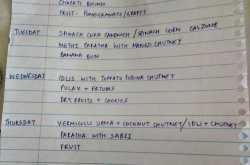 CHAPATI BHINDI
FRUIT - POMEGRANATE/GRAPES
TUESDAY SPINACH CORN SANDWICH / SPINACH CORN CALZONE
METHI PARATHA WITH MANGO CHUTNEY
BANANA BUN
WEDNESDAY IDLIS WITH TOMATO PUDINA CHUTNEY
PULAV + PATUMS
DRY FRUITS + COOKIES
THURSDAY VERMICELLI UPMA + COCONUT CHUTNEY / IDLI + CHUTNEY
PARATHA WITH SABZI
FRUIT